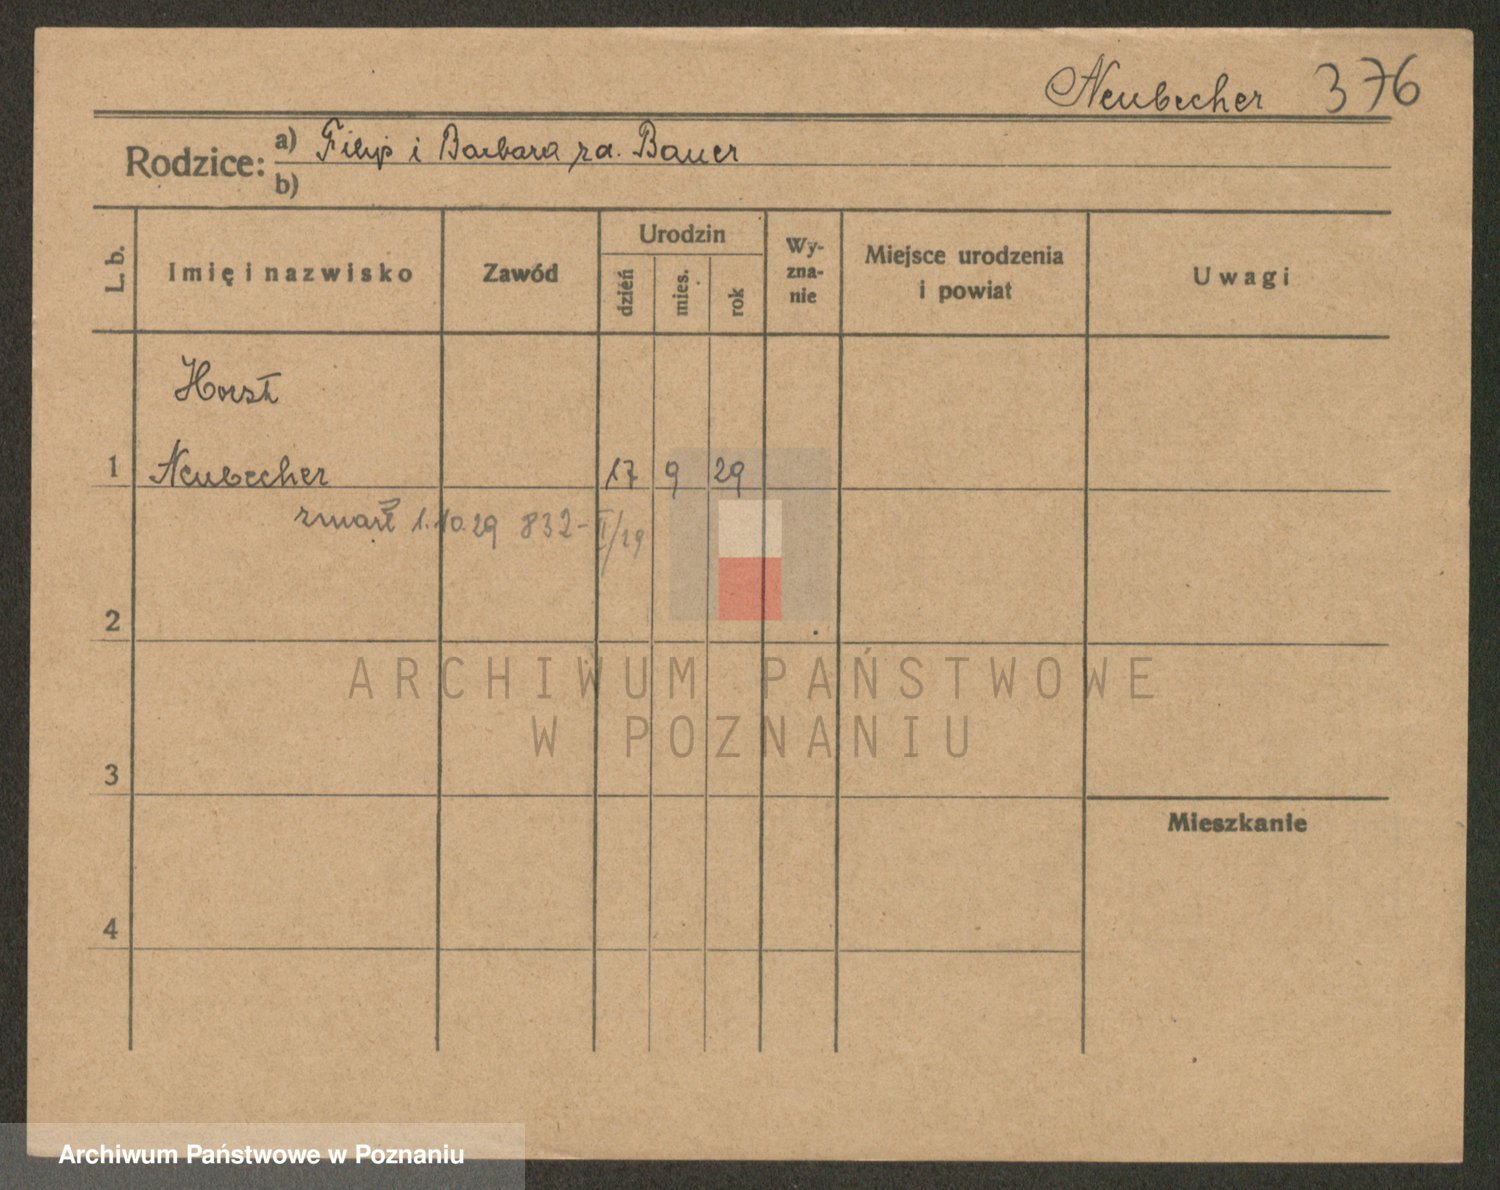 Neubecher 376
Rodzice: a) Filip i Barbara za. Bauer
b)
L. b.
Imię i nazwisko
Zawód
Urodzin
dzień
mies.
rok
Wy-
zna-
nie
Miejsce urodzenia
i powiat
Uwagi
Horst
1 Neubecher 17 9 29
zmarł 1.10.29 832-II/29
2
ARCHIWUM PAŃSTWOWE
W POZNANIU
3
Mieszkanie
4
Archiwum Państwowe w Poznaniu